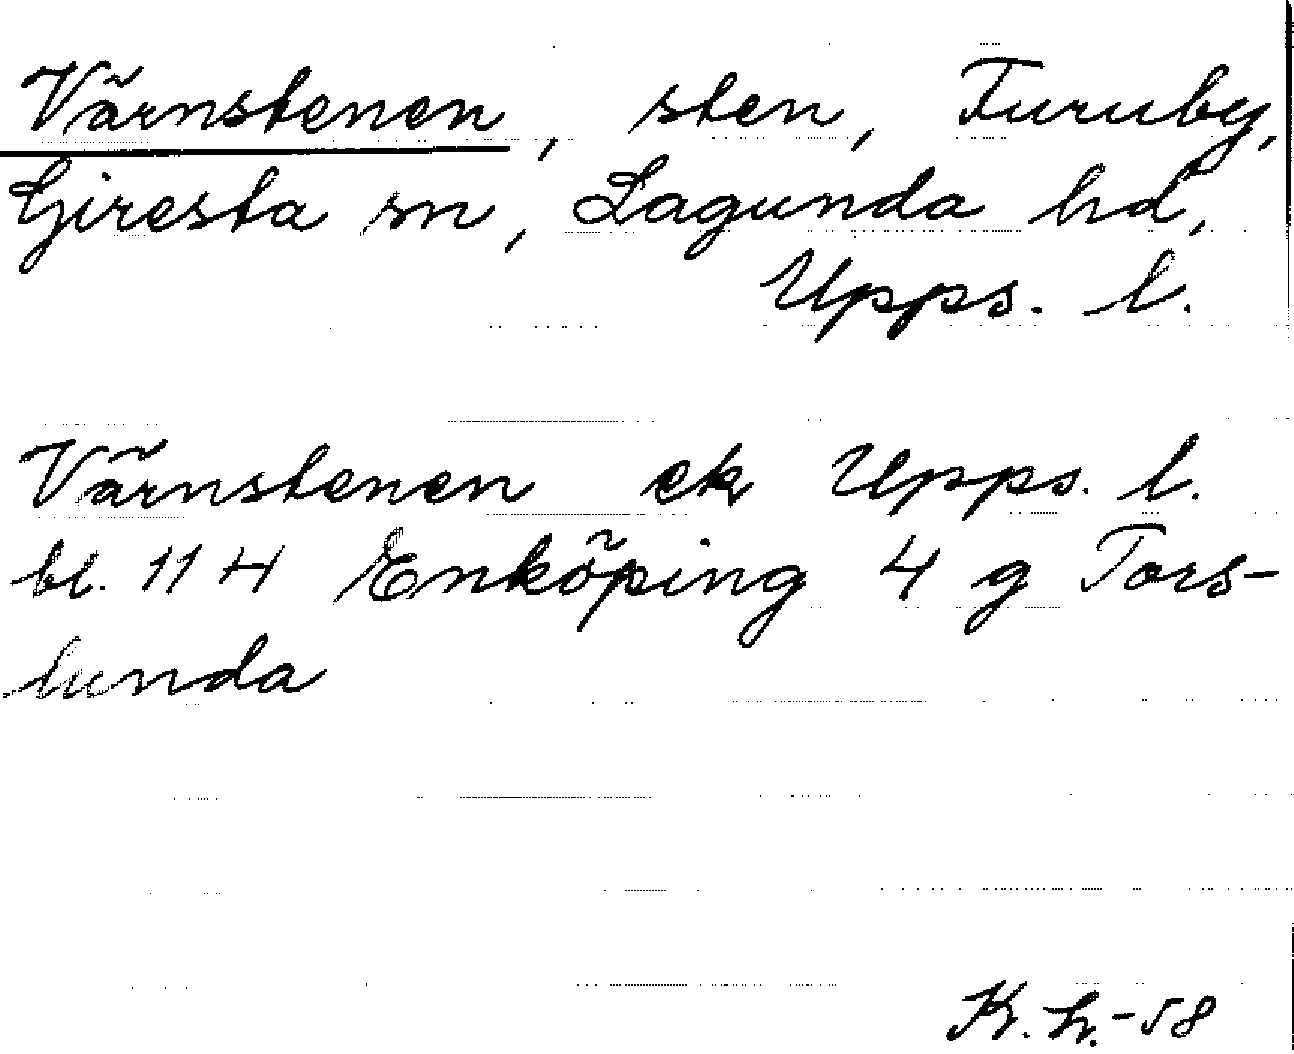 Värnstenen, sten, Furuby,
Giresta sn, Lagunda hd,
Upps. l.
Värnstenen ek Upps. l.
bl. 114 Enköping 4 g Tors-
lunda
K. H.-58